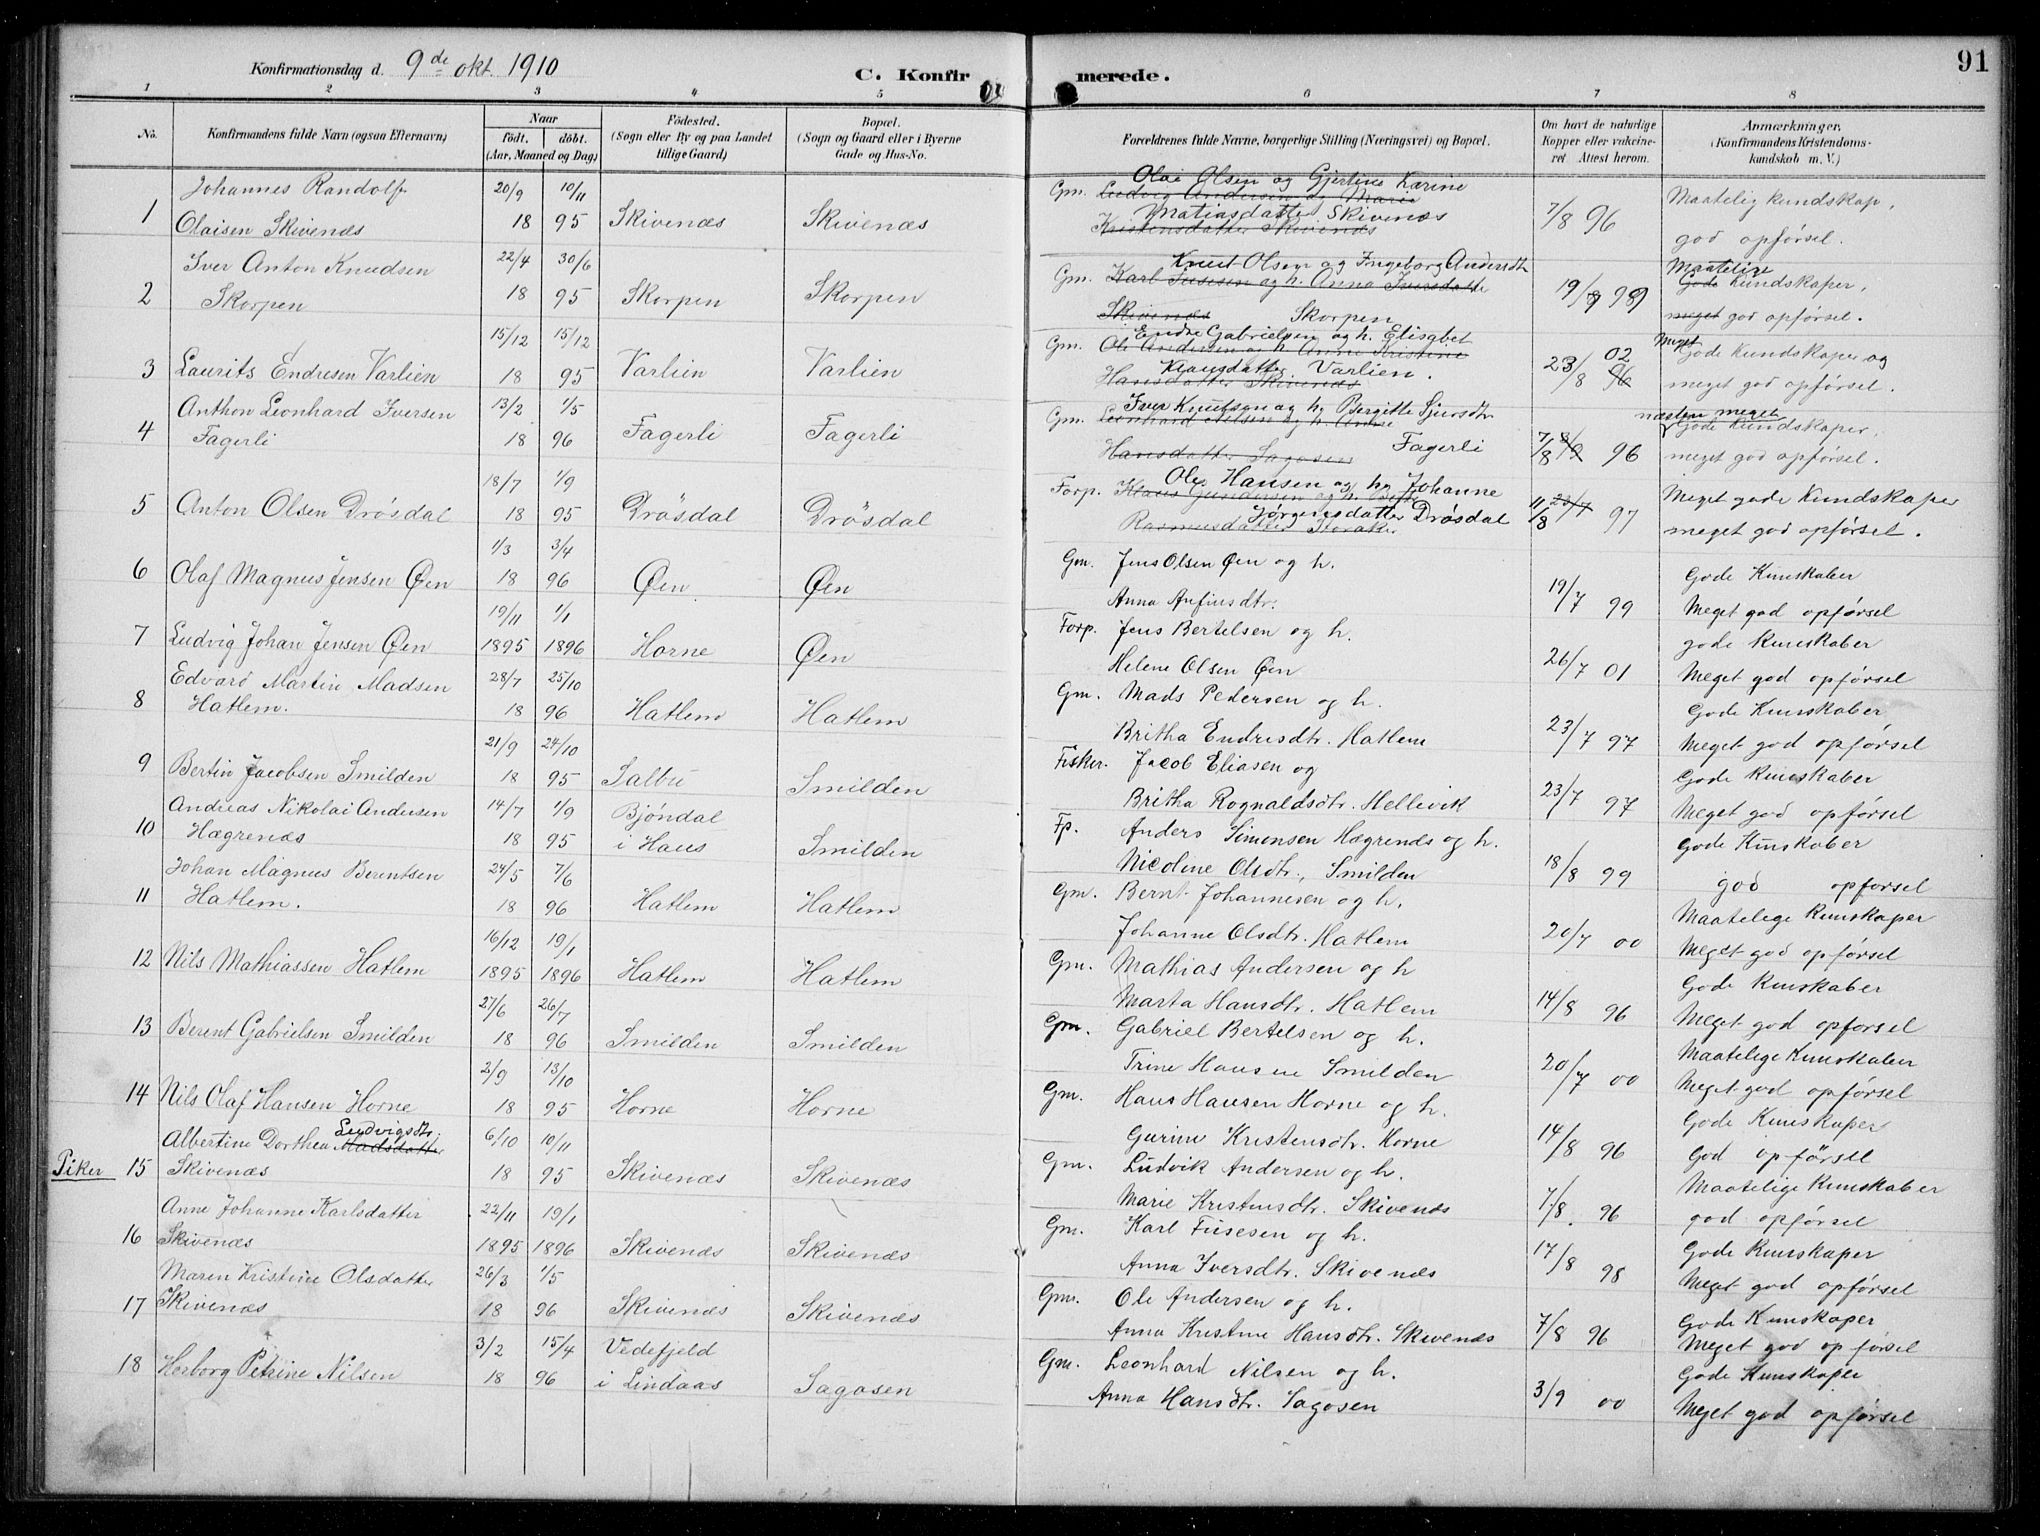 91
Konfirmationsdag d. 9de okt. 1910
C. Konfirmerede.
1 2 3 4 5 6 7 8
No. Konfirmandens fulde Navn (ogsaa Efternavn) Naar født. døbt. (Aar, Maaned og Dag) Fødested. (Sogn eller By og paa Landet tillige Gaard) Bopæl. (Sogn og Gaard eller i Byerne Gade og Hus-No. Forældrenes fulde Navne, borgerlige Stilling (Næringsvei) og Bopæl. Om havt de naturlige Kopper eller vakcineret Attest herom. Anmærkninger. (Konfirmandens Kristendomskundskab m. V.)
Johannes Randolf 20/9 10/11 Gm. Olai Olsen og Gjertine Karine
Ludvig Andersen og Marie
1 Olaisen Skivenæs 18 95 Skivenæs Skivenæs Matiasdatter Skivenæs 7/8 96 Maatelig kundskap,
Kristensdatter Skivenæs god opførsel.
Iver Anton Knudsen 22/4 30/6 Knut Olsen og Ingeborg Andersdtr
Gm. Karl Fusesen og h. Anna Iversdatter Maatelige
2 Skorpen 18 95 Skorpen Skorpen Skivenæs Skorpen 19/8 989 Gode kundskaper,
meget god opførsel.
15/12 15/12 Gm. Endre Gabrielsen og h. Elisabet
Ole Andersen og h. Anna Kristine
3 Laurits Endresen Varlien 18 95 Varlien Varlien Klausdatter Varlien. 23/8 02 96 Meget Gode kundskaper og
Hansdatter Skivenæs meget god opførsel.
Anthon Leonhard Iversen 13/2 1/5 Iver Knutsen og h. Bergitte Sjursdtr næsten meget
4 Fagerli 18 96 Fagerli Fagerli Gm. Leonhard Nilsen og h. Anna 7/8 96 Gode Kundskaper,
Hansdatter Sagosen Fagerli meget god opførsel.
18/7 1/9 Ole Hansen og h. Johanne
5 Anton Olsen Drösdal 18 95 Drösdal Drösdal Forp. Klaus Gundersen og h. Berte 11/8 23/7 97 Meget gode Kundskaper
Jørgensdatter Drösdal meget god opførsel.
Rasmusdatter
1/3 3/4 Gm. Jens Olsen Øen og h. Gode Kunskaber
6 Olaf Magnus Jensen Øen 18 96 Øen Øen Anna Anfinsdtr. 19/7 99 Meget god opførsel
19/11 1/1 Forp. Jens Bertelsen og h. gode kunskaber
7 Ludvig Johan Jensen Øen 1895 1896 Horne Øen Helene Olsen Øen 26/7 01 Meget god opførsel
Edvard Martin Madsen 28/7 25/10 Gm. Mads Pedersen og h. Gode Kunskaber
8 Hatlem. 18 96 Hatlem Hatlem Britha Endresdtr. Hatlem 23/7 97 Meget god opførsel
21/9 24/10 Fisker. Jacob Eliasen og Gode Kunskaber
9 Bertin Jacobsen Smilden 18 95 Salbu Smilden Britha Rognaldsdtr. Hellevik 23/7 97 Meget god opførsel
Andreas Nikolai Andersen 14/7 1/9 Bjöndal Fp. Anders Simonsen Hægrenæs og h. Gode Kunskaber
10 Hægrenæs 18 95 i Haus Smilden Nicoline Olsdtr., Smilden 18/8 99 god opførsel
Johan Magnus Berentsen 24/5 7/6 Gm. Bernt Johannesen og h. Maatelige Kunskaper
11 Hatlem. 18 96 Hatlem Hatlem Johanne Olsdtr. Hatlem 20/7 00 Meget god opførsel
16/12 19/1 Gm. Mathias Andersen og h Gode Kunskaber
12 Nils Mathiassen Hatlem 1895 1896 Hatlem Hatlem Marta Hansdtr. Hatlem 14/8 96 Meget god opførsel
27/6 26/7 Gm. Gabriel Bertelsen og h. Maatelige Kunskaber
13 Berent Gabrielsen Smilden 18 96 Smilden Smilden Trine Hansene Smilden 20/7 00 Meget god opførsel
2/9 13/10 Gm. Hans Hansen Horne og h. Gode Kunskaper
14 Nils Olaf Hansen Horne 18 95 Horne Horne Gurine Kristensdtr. Horne 14/8 96 God opförsel
Albertine Dorthea Madsdatter Ludvigsdtr. 6/10 10/11 Gm. Ludvik Andersen og h. Maatelige Kunskaber
Piker 15 Skivenæs 18 95 Skivenæs Skivenæs Marie Kristensdtr. Skivenæs 7/8. 96 god opførsel
Anne Johanne Karlsdatter 22/11 19/1 Gm. Karl Fusesen og h. Gode Kunskaper
16 Skivenæs 1895 1896 Skivenæs Skivenæs Anna Iversdtr. Skivenæs 17/8 98 Meget god opførsel
Maren Kristine Olsdatter 26/3 1/5 Gm. Ole Andersen og h. Gode Kunskaper
17 Skivenæs 18 96 Skivenæs Skivenæs Anna Kristine Hansdtr. Skivenæs 7/8 96 Meget god opførsel
3/2 15/4 Vedefjeld Gm. Leonhard Nilsen og h. Gode Kunskaper
18 Herborg Petrine Nilsen 18 96 i Lindaas Sagosen Anna Hansdtr. Sagosen 3/9 00 Meget god opførsel